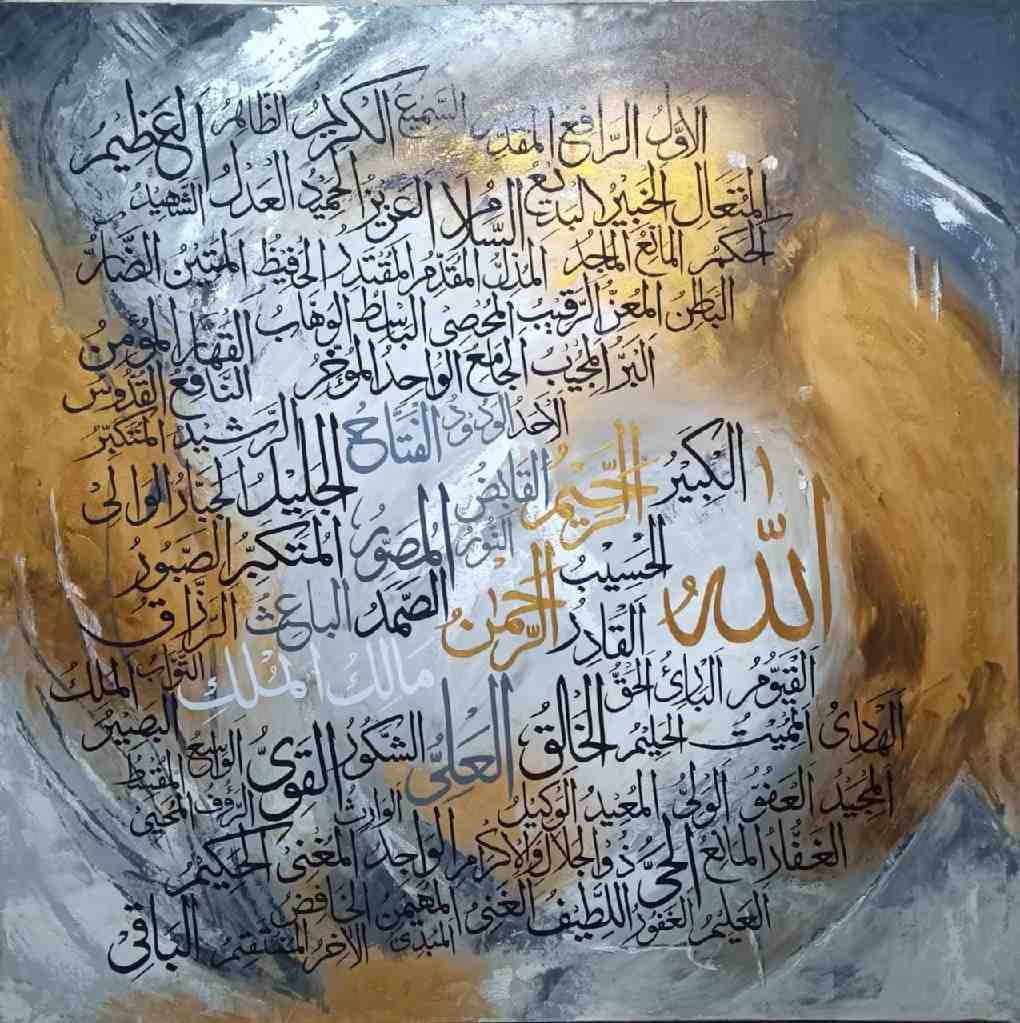 الأوّل الرّافع المقدّر السّميع الكريم الظّاهر العظيم
المتعال الخبير البديع السّلام العزيز الحميد العدل الشّهيد
الحكم المانع الماجد المذلّ المقدّم المقتدر الحفيظ المتين الضّارّ
الباطن المعزّ الرّقيب المحصي الباسط الوهّاب القهّار المؤمن
البرّ المجيب الجامع الواحد المؤخّر النّافع القدّوس
الأحد الودود الفتّاح الرّشيد المتكبّر
الكبير الرّحيم القابض الجليل الجبّار الوالي
الله الحسيب النّور المصوّر المتكبّر الصّبور
القادر الرّحمٰن الصّمد الباعث الرّزّاق
القيّوم البارئ الحقّ مالك الملك التّوّاب الملك
الهادي المميت الحليم الخالق العليّ الشّكور القويّ الواسع البصير
المجيد العفوّ الوليّ المعيد الوكيل الوارث الرّؤوف المحيي المقسط
الغفّار المانع الحيّ ذو الجلال والإكرام الواجد المغني الحكيم
العليم الغفور اللّطيف الغنيّ المهيمن الخافض
المبدئ الآخر المنتقم الباقي